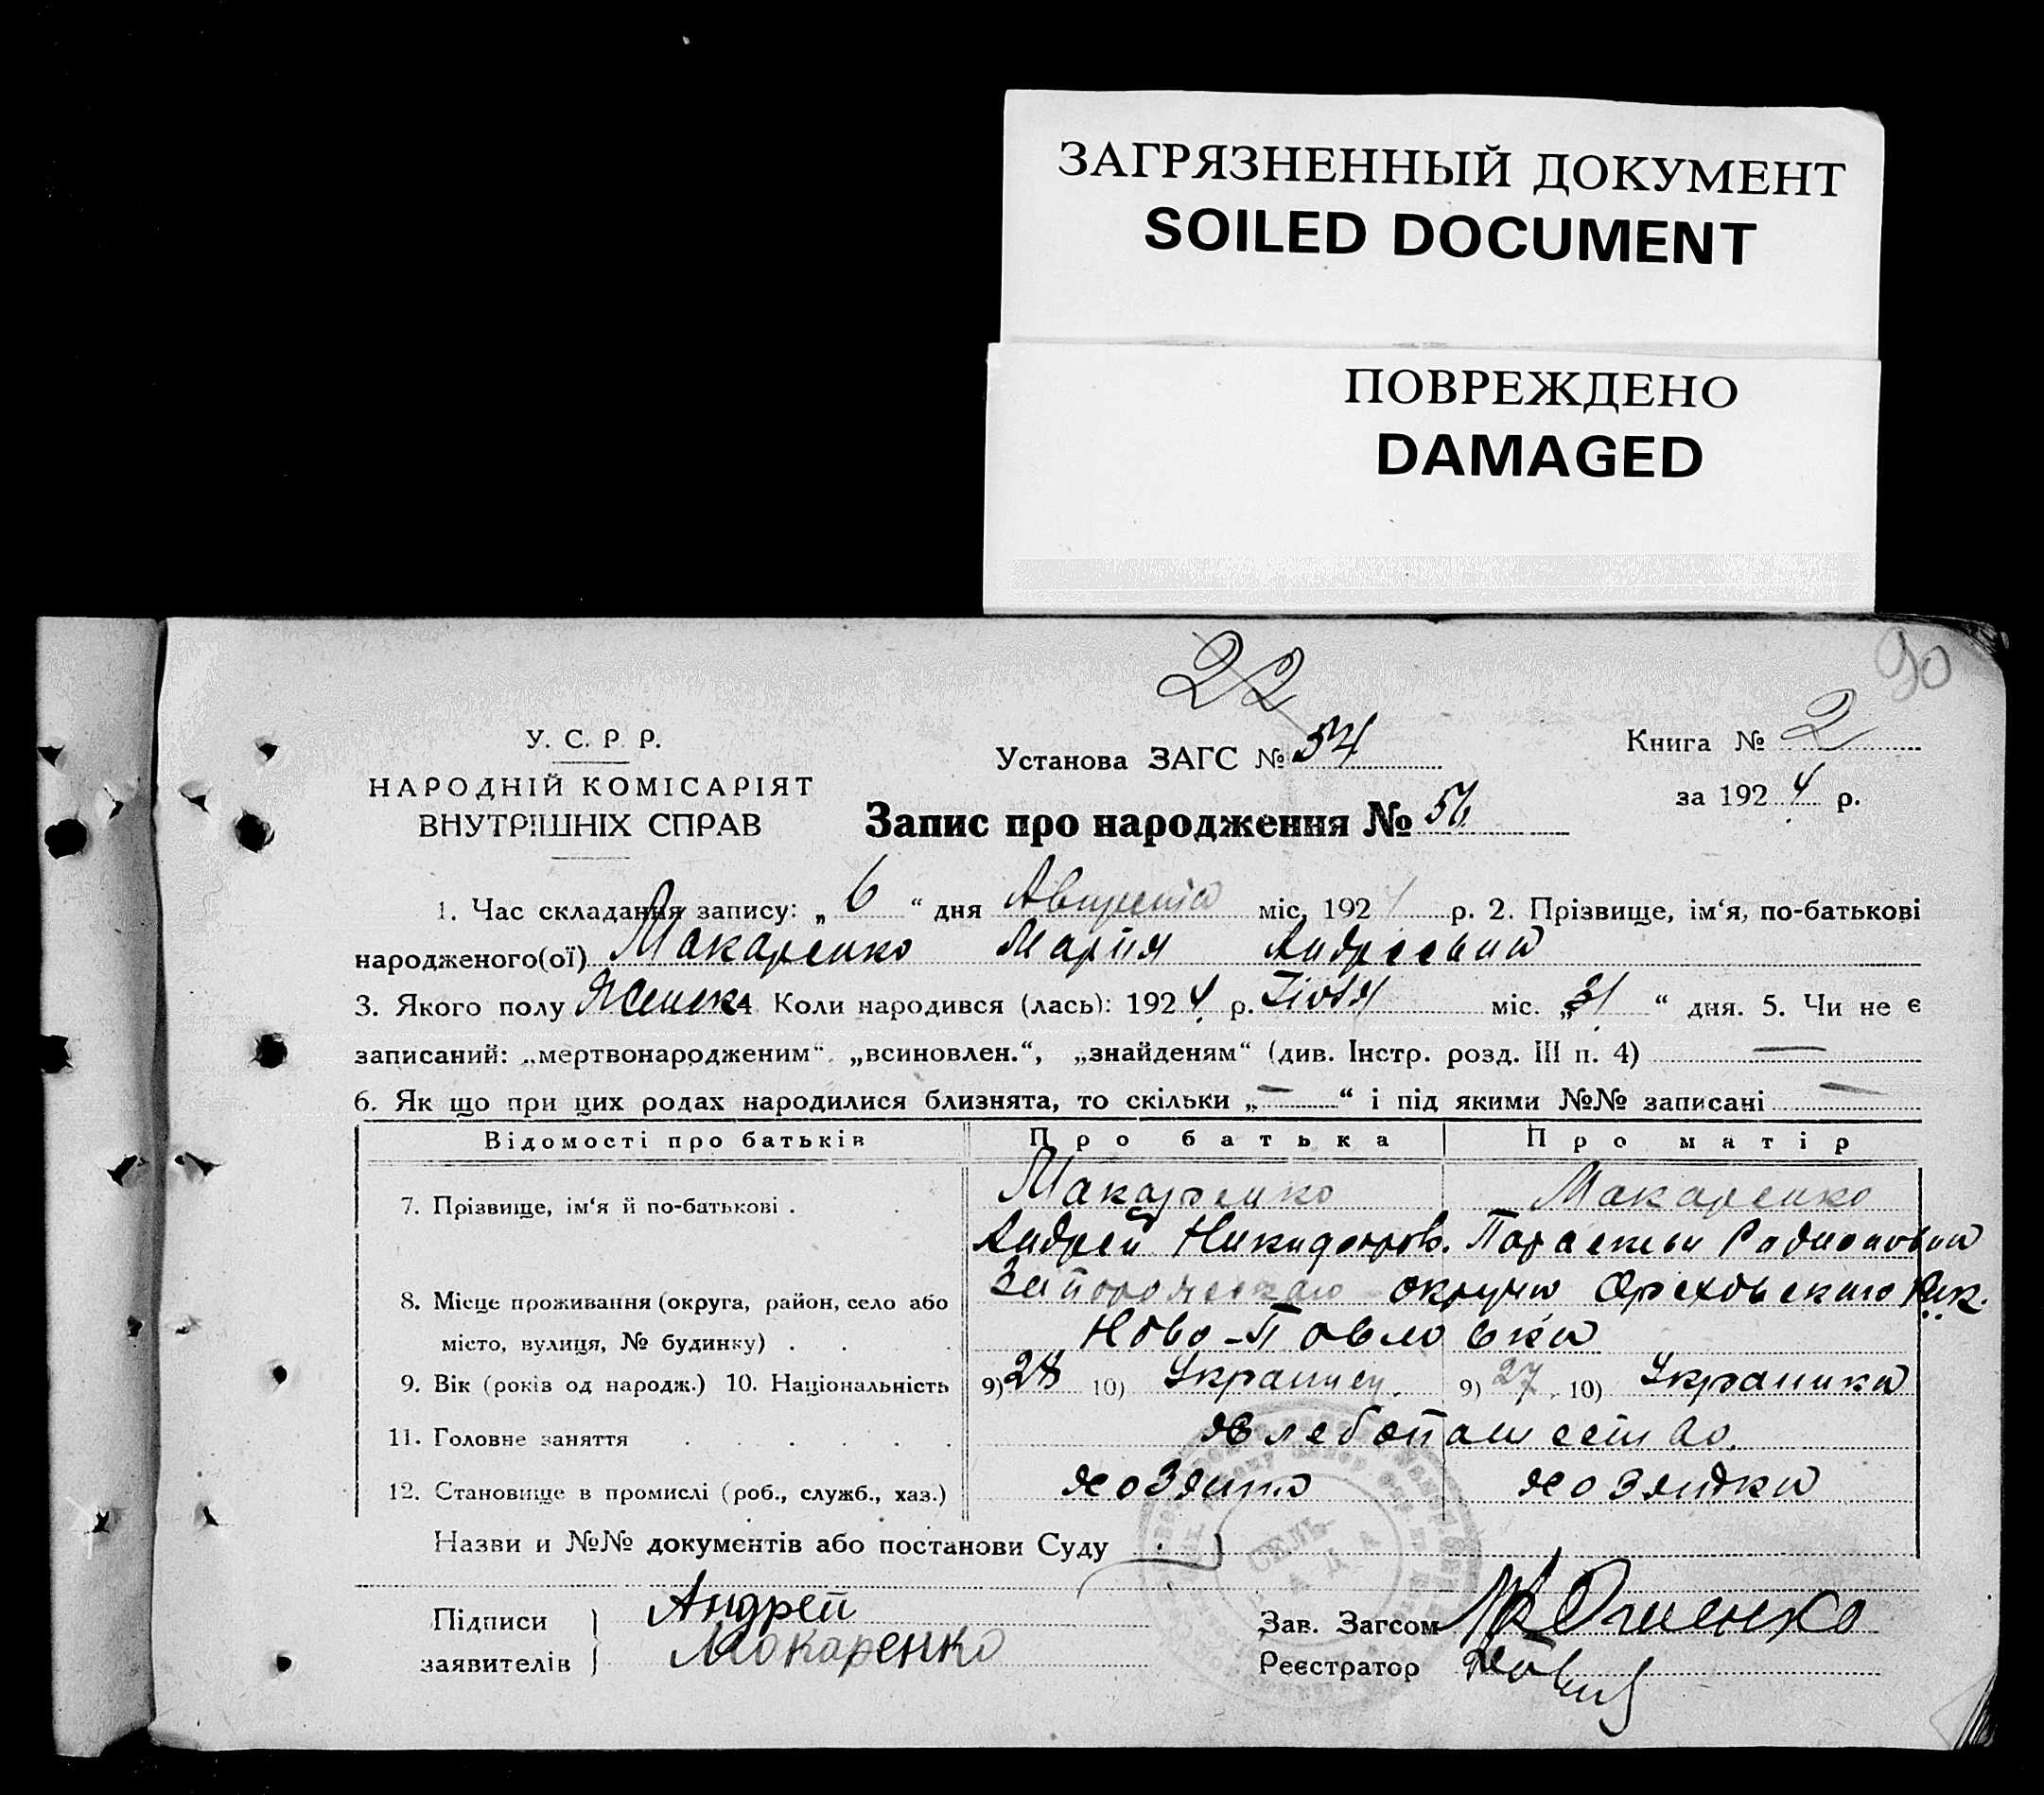 ЗАГРЯЗНЕННЫЙ ДОКУМЕНТ
SOILED DOCUMENT
ПОВРЕЖДЕНО
DAMAGED
90
22
У. С. Р. Р.
НАРОДНІЙ КОМІСАРІЯТ
ВНУТРІШНІХ СПРАВ
Установа ЗАГС № 54
Книга № 2
за 1924 р.
Запис про народження № 56
1. Час складання запису: „ 6 “ дня Августа міс. 1924 р. 2. Прізвище, ім‘я, по-батькові
народженого(ої) Макаренко Мария Андреевна
3. Якого полу Женск. 4 Коли народився (лась): 1924 р. Июля міс. „31 “ дня. 5. Чи не є
записаний: „мертвонародженим“ „всиновлен.“, „знайденям“ (див. Інстр. розд. III п. 4) —
6. Як що при цих родах народилися близнята, то скільки „—“ і під якими №№ записані —
Відомості про батьків Про батька Про матір
7. Прізвище, ім‘я й по-батькові . Макаренко Макаренко
Андрей Никифоров. Параскева Родионовна
8. Місце проживання (округа, район, село або Запорожского округа Ореховского Рик.
місто, вулиця, № будинку) . Ново-Павловка
9. Вік (років од народж.) 10. Національність 9) 28 10) Украинец. 9) 27 10) Украинка
11. Головне заняття Хлебопашество.
12. Становище в промислі (роб., служб., хаз.) хозяин хозяйка
Назви и №№ документів або постанови Суду
Підписи Андрей Зав. Загсом
заявителів Макаренко Реєстратор
СЕЛЬ-
РАДА